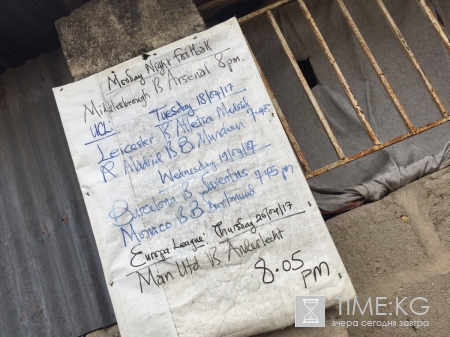 Monday Night Football
Middlesbrough B Arsenal 8pm.
UCL: Tuesday 18/04/17
Leicester B Atletico Madrid
R Madrid B B Munchen 7-45
Wednesday 19/04/17
Barcelona B Juventus 7-45 pm
Monaco B B Dortmund
Europa League: Thursday 20/04/17
Man Utd B Anderlecht
8.05
pm.
TIME.KG
вчера сегодня завтра